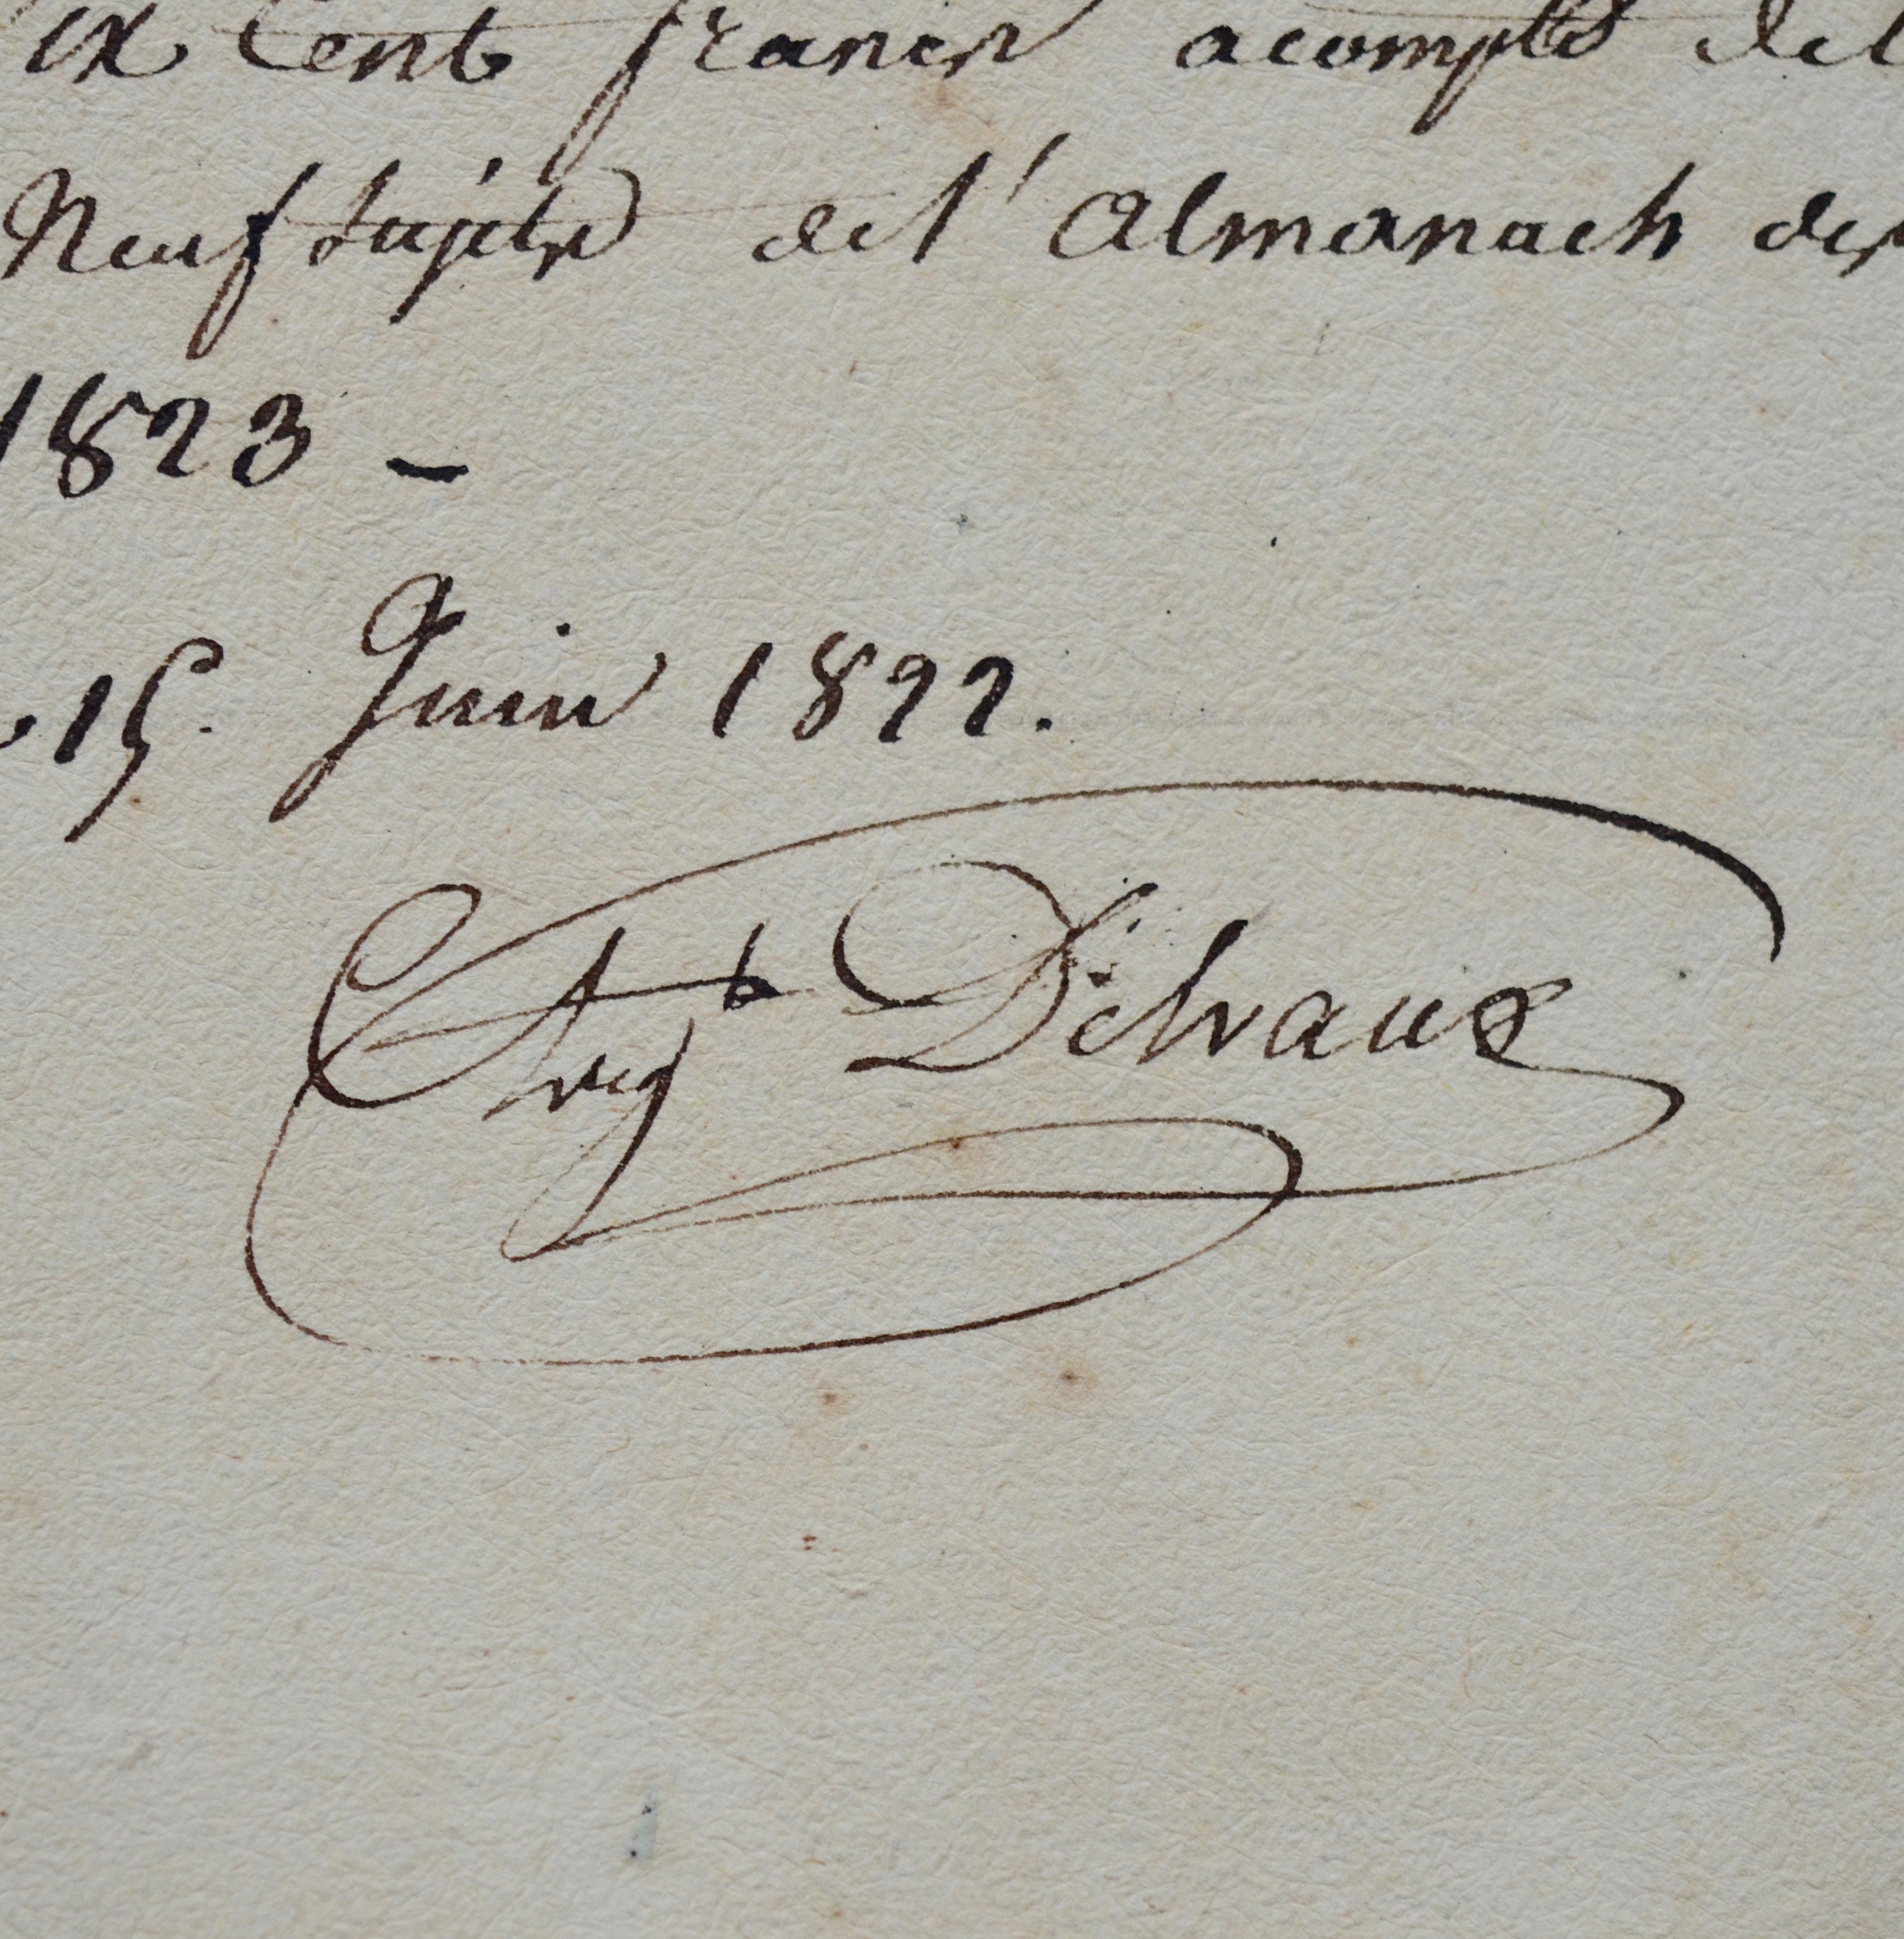 ix Cent francs acompte del
Neuf Sujets del'Almanach des
1823 -
15. Juin 1822.
Delvaux